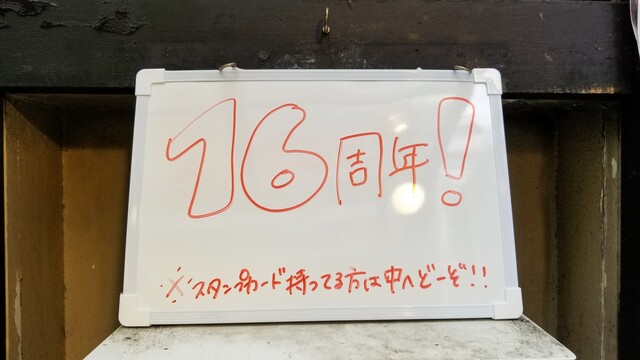 16周年!
※スタンプカード持ってる方は中へどーぞ!!